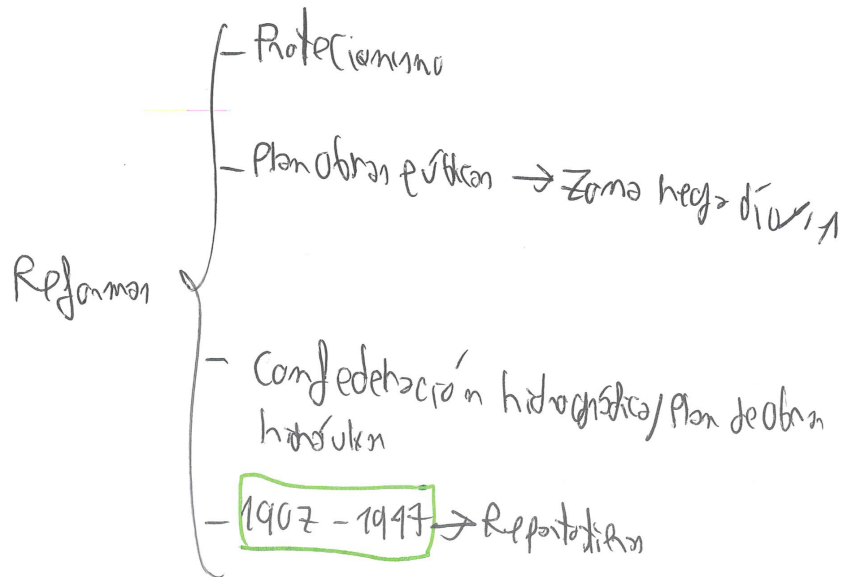 - Protecionismo
- Plan Obras públicas → Zona
Reformas
- Confederación hidrográfica/Plan de Obras
hidráulicas
- 1907 - 1947 → Repartotierras